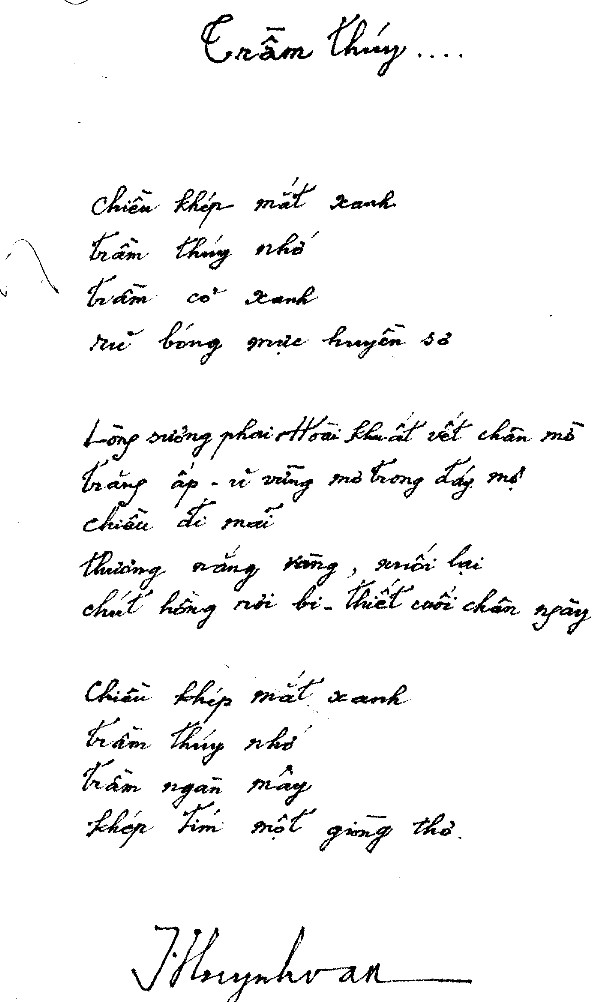 Trầm thúy....
Chiều khép mắt xanh
trầm thúy nhớ
trầm cỏ xanh
rũ bóng mực huyền sơ
Lòng sương phai Hoài khuất vết chân mờ
trăng ấp-ủ vừng mơ trong đáy mộ
chiều đi mãi
thương nắng vàng, nuối lại
chút hồng rơi bi-thiết cuối chân ngày
Chiều khép mắt xanh
trầm thúy nhớ
trầm ngàn mây
khép tím một giòng thơ.